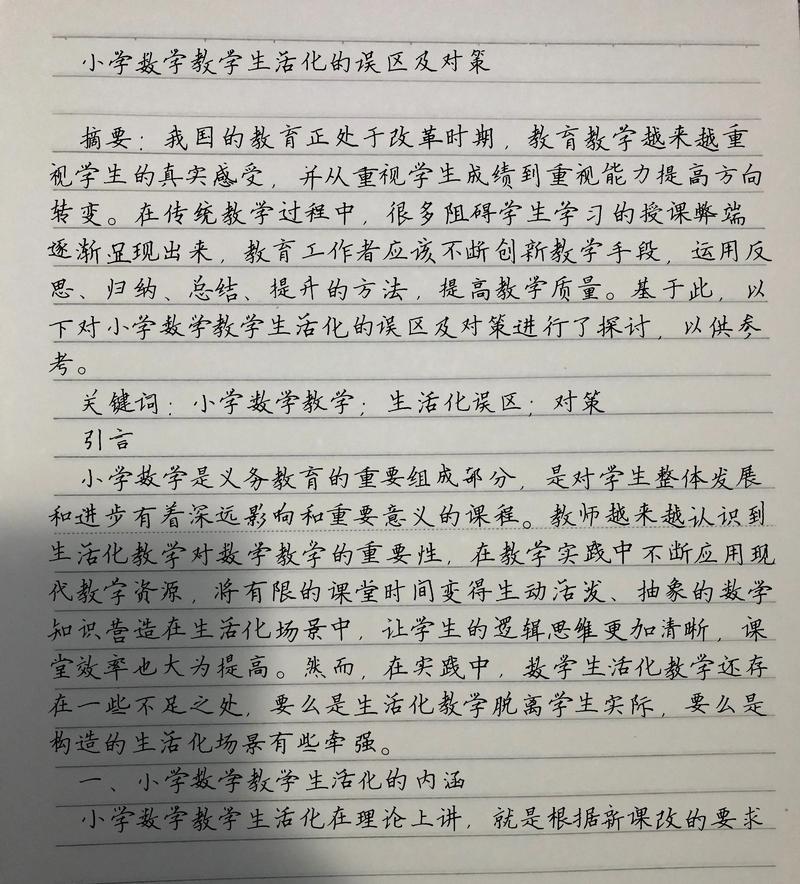 小学数学教学生活化的误区及对策
摘要：我国的教育正处于改革时期，教育教学越来越重
视学生的真实感受，并从重视学生成绩到重视能力提高方向
转变。在传统教学过程中，很多阻碍学生学习的授课弊端
逐渐显现出来，教育工作者应该不断创新教学手段，运用反
思、归纳、总结、提升的方法，提高教学质量。基于此，以
下对小学数学教学生活化的误区及对策进行了探讨，以供参
考。
关键词；小学数学教学；生活化误区；对策
引言
小学数学是义务教育的重要组成部分，是对学生整体发展
和进步有着深远影响和重要意义的课程。教师越来越认识到
生活化教学对数学教学的重要性，在教学实践中不断应用现
代教学资源，将有限的课堂时间变得生动活泼、抽象的数学
知识营造在生活化场景中，让学生的逻辑思维更加清晰，课
堂效率也大为提高。然而，在实践中，数学生活化教学还存
在一些不足之处，要么是生活化教学脱离学生实际，要么是
构造的生活化场景有些牵强。
一、小学数学教学生活化的内涵
小学数学教学生活化在理论上讲，就是根据新课改的要求